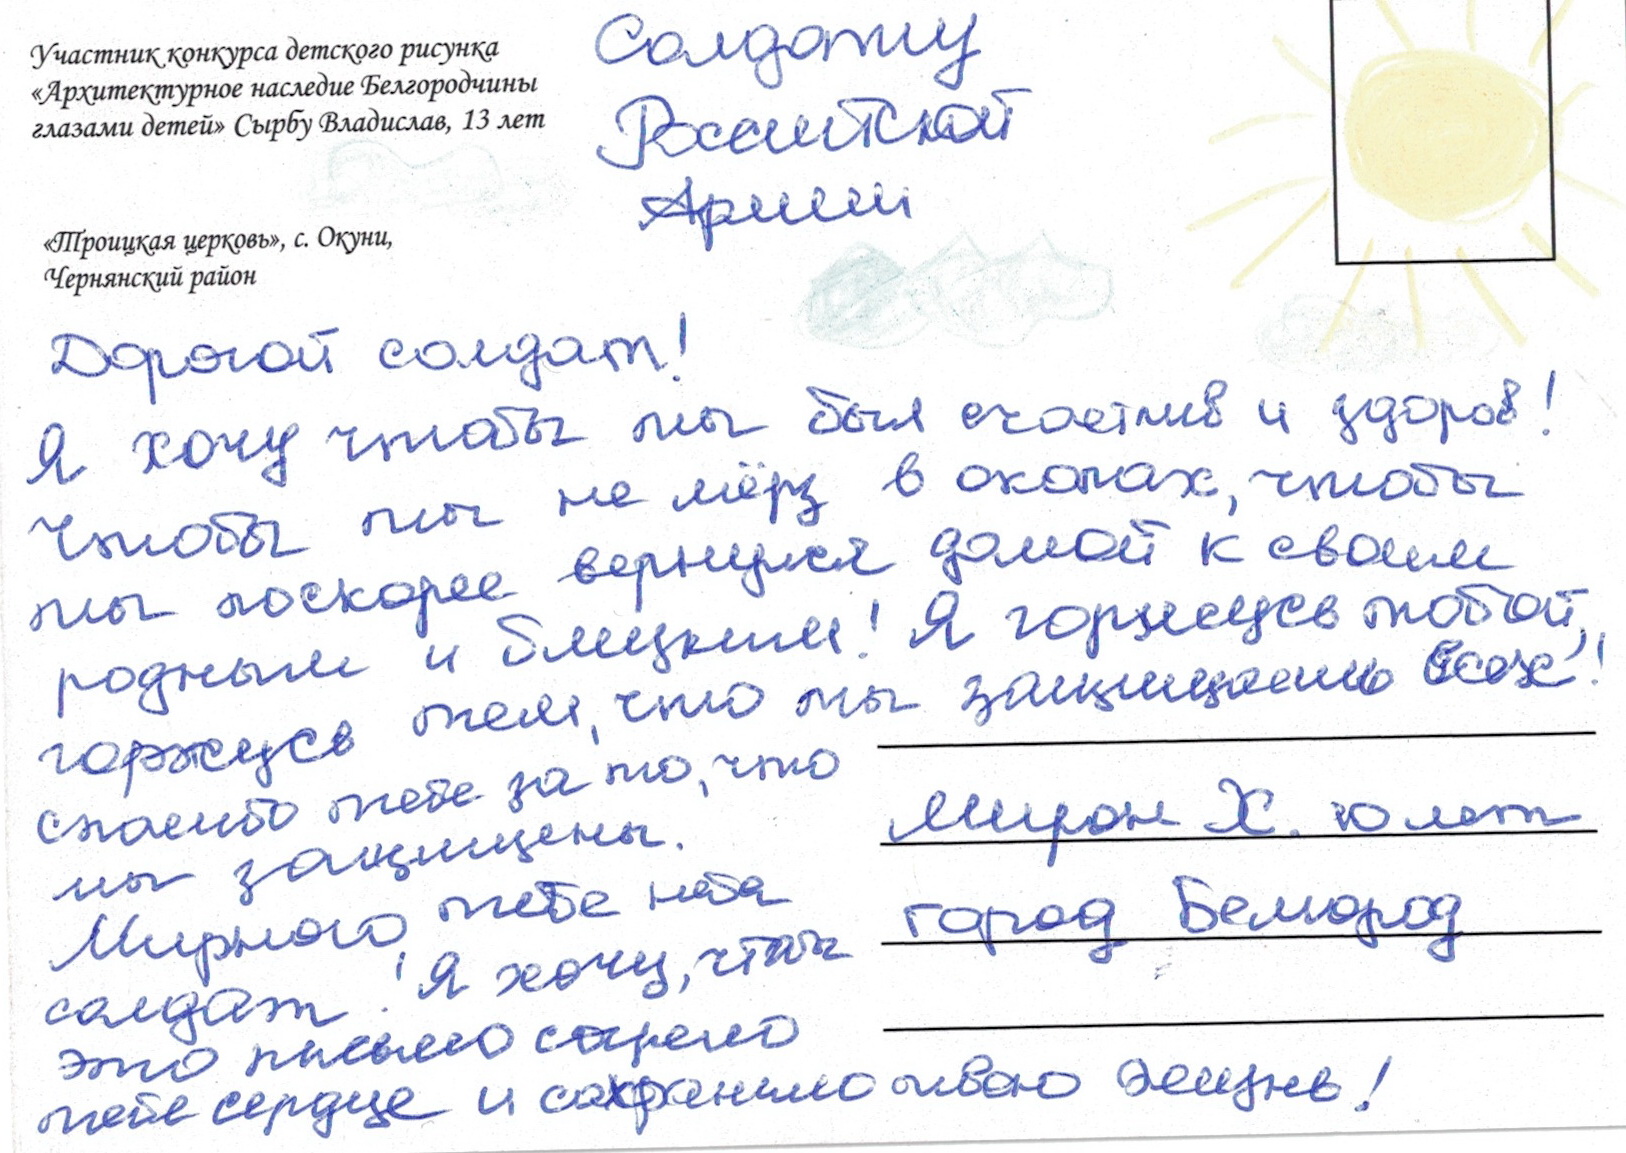 Участник конкурса детского рисунка
«Архитектурное наследие Белгородчины
глазами детей» Сырбу Владислав, 13 лет
«Троицкая церковь», с. Окуни,
Чернянский район
Солдату
Российской
Армии
Дорогой солдат!
Я хочу чтобы ты был счастлив и здоров!
Чтобы ты не мёрз в окопах, чтобы
ты поскорее вернулся домой к своим
родным и близким! Я горжусь тобой,
горжусь тем, что ты защищаешь всех!
спасибо тебе за то, что
мы защищены.
Мирного тебе неба
солдат! Я хочу, чтобы
это письмо согрело
тебе сердце и сохранило твою жизнь!
Мирон Х. 10 лет
город Белгород